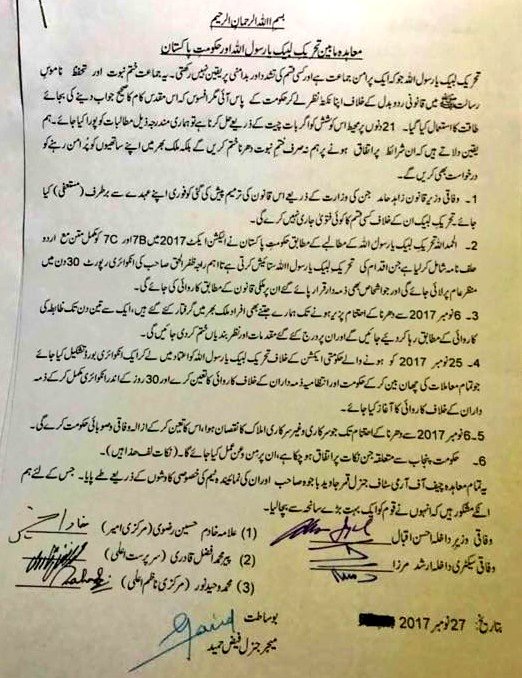 بسم اللہ الرحمان الرحیم
معاہدہ مابین تحریک لبیک یا رسول اللہ اور حکومتِ پاکستان
تحریک لبیک یا رسول اللہ جو کہ ایک پرامن جماعت ہے اور کسی قسم کی تشدد اور بدامنی پر یقین نہیں رکھتی۔ یہ جماعت ختم نبوت اور تحفظ ناموسِ
رسالت ﷺ میں قانونی ردوبدل کے خلاف اپنا نکتہ نظر لے کر حکومت کے پاس آئی مگر افسوس کہ اس مقدس کام کا صحیح جواب دینے کی بجائے
طاقت کا استعمال کیا گیا۔ 21 دنوں پر محیط اس کوشش کو اگر بات چیت کے ذریعے حل کرنا ہے تو ہماری مندرجہ ذیل مطالبات کو پورا کیا جائے۔ ہم
یقین دلاتے ہیں کہ ان شرائط پر اتفاق ہونے پر ہم نہ صرف ختم نبوت دھرنا ختم کریں گے بلکہ ملک بھر میں اپنے ساتھیوں کو پُرامن رہنے کی
درخواست بھی کریں گے۔
1۔ وفاقی وزیر قانون زاہد حامد جن کی وزارت کے ذریعے اس قانون کی ترمیم پیش کی گئی کو فوری اپنے عہدے سے برطرف (مستعفی) کیا
جائے۔ تحریک لبیک ان کے خلاف کسی قسم کا کوئی فتویٰ جاری نہیں کرے گی۔
2۔ الحمدللہ تحریک لبیک یا رسول اللہ کے مطالبے کے مطابق حکومتِ پاکستان نے الیکشن ایکٹ 2017 میں 7B اور 7C کو مکمل متن مع اردو
حلف نامہ شامل کر لیا ہے جن اقدام کی تحریک لبیک یا رسول اللہ ستائش کرتی ہے تاہم راجہ ظفرالحق صاحب کی انکوائری رپورٹ 30 دن میں
منظر عام پر لائی جائے گی اور جو اشخاص بھی ذمہ دار قرار پائے گئے ان پر ملکی قانون کے مطابق کاروائی کی جائے گی۔
3۔ 6 نومبر 2017 سے دھرنا کے اختتام پزیر ہونے تک ہمارے جتنے بھی افراد ملک بھر میں گرفتار کئے گئے ہیں، ایک سے تین دن تک ضابطہ کی
کاروائی کے مطابق رہا کر دیئے جائیں گے اور ان پر درج کئے گئے مقدمات اور نظر بندیاں ختم کر دی جائیں گی۔
4۔ 25 نومبر 2017 کو ہونے والے حکومتی ایکشن کے خلاف تحریک لبیک یا رسول اللہ کو اعتماد میں لے کر ایک انکوائری بورڈ تشکیل کیا جائے
جو تمام معاملات کی چھان بین کر کے حکومت اور انتظامیہ ذمہ داران کے خلاف کاروائی کا تعین کرے اور 30 روز کے اندر انکوائری مکمل کر کے ذمہ
داران کے خلاف کاروائی کا آغاز کیا جائے۔
5۔ 6 نومبر 2017 سے دھرنا کے اختتام تک جو سرکاری وغیر سرکاری املاک کا نقصان ہوا، اس کا تعین کر کے ازالہ وفاقی وصوبائی حکومت کرے گی۔
6۔ حکومت پنجاب سے متعلقہ جن نکات پر اتفاق ہو چکا ہے، ان پر من وعن عمل کیا جائے گا۔ (نکات لف ھذا ہیں)۔
یہ تمام معاہدہ چیف آف آرمی سٹاف جنرل قمر جاوید باجوہ صاحب اور ان کی نمائندہ ٹیم کی خصوصی کاوشوں کے ذریعے طے پایا۔ جس کے لئے ہم
انکے مشکور ہیں کہ انہوں نے قوم کو ایک بہت بڑے سانحہ سے بچا لیا۔
وفاقی وزیر داخلہ احسن اقبال
وفاقی سیکٹری داخلہ ارشد مرزا
(1) علامہ خادم حسین رضوی (مرکزی امیر)
(2) پیر محمد افضل قادری (سرپرست اعلیٰ)
(3) محمد وحید نور (مرکزی ناظم اعلیٰ)
بتاریخ: 27 نومبر 2017
بوساطت
میجر جنرل فیض حمید